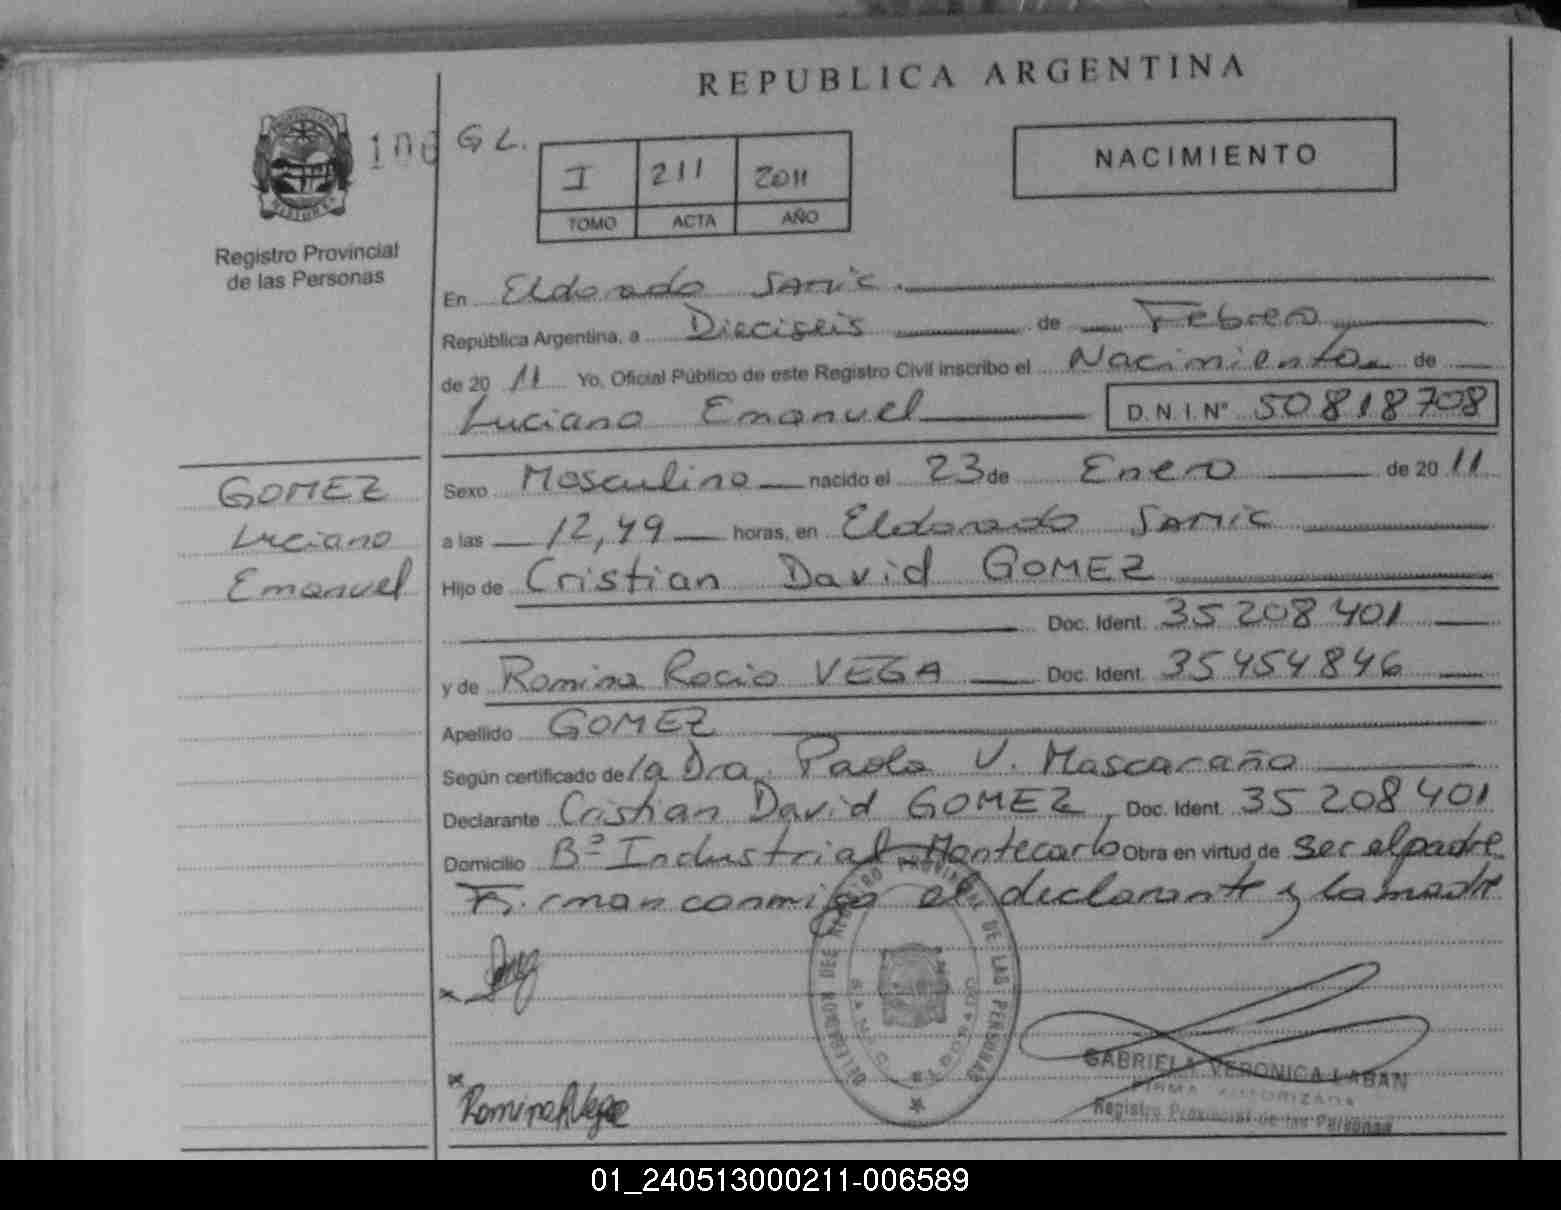 REPUBLICA ARGENTINA
106 G L.
I 211 2011
TOMO ACTA AÑO
NACIMIENTO
Registro Provincial
de las Personas
En Eldorado SAMIC
República Argentina, a Dieciseis de Febrero
de 20 11 Yo, Oficial Público de este Registro Civil inscribo el Nacimiento de
Luciano Emanuel D.N.I.Nº 50818708
GOMEZ
Luciano
Emanuel
Sexo Masculino nacido el 23 de Enero de 20 11
a las 12,49 horas, en Eldorado SAMIC
Hijo de Cristian David GOMEZ
Doc. Ident. 35 208 401
y de Romina Rocio VEGA Doc. Ident. 35454846
Apellido GOMEZ
Según certificado de la Dra. Paola V. Mascaraño
Declarante Cristian David GOMEZ, Doc. Ident. 35 208 401
Domicilio Bº Industrial Montecarlo Obra en virtud de ser el padre
Firman conmigo el declarante y la madre
DELEGADOR DEL REGISTRO PROVINCIAL DE LAS PERSONAS
ELDORADO
Romina R Vega
GABRIELA VERONICA LABAN
FIRMA AUTORIZADA
Registro Provincial de las Personas
01_240513000211-006589